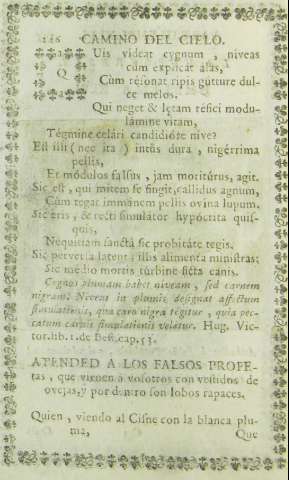 116 CAMINO DEL CIELO.
QUis videat cygnum, niveas
cùm explicet alas,
Cùm résonat ripis gutture dul-
ce melos.
Qui neget & lętam réfici modu-
lamine vitam,
Tégmine celári candidióre nive?
Est illi (nec ita) intùs dura, nigérrima
pellis,
Et módulos falsus, jam moritúrus, agit.
Sic est, qui mitem se fingit, callidus agnum,
Cùm tegat immánem pellis ovina lupum.
Sic eris, & recti simulátor hypócrita quis-
quis,
Nequitiam sanctâ sic probitáte tegis.
Sic perversa latent; illis alimenta ministras;
Sic medio mortis túrbine ficta canis.
Cygnus plumam habet niveam, sed carnem
nigram. Niveus in plumis designat affectum
simulationis, qua caro nigra tegitur, quia pec-
catum carnis simulationis velatur. Hug. Vic-
tor. lib. 1. de Best. cap. 53.
ATENDED A LOS FALSOS PROFE-
tas, que vienen à vosotros con vestidos de
ovejas, y por dentro son lobos rapaces.
Quien, viendo al Cisne con la blanca plu-
ma,
Que